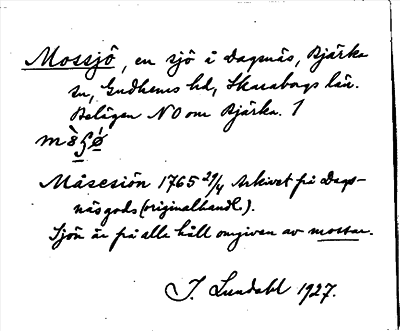 Mossjö, en sjö i Dagsnäs, Bjärka
sn, Gudhems hd, Skaraborgs län.
Belägen NO om Bjärka. 1
Måsesiön 1765 29/4 Arkivet på Dags-
näs gods (originalhandl.).
Sjön är på alla håll omgiven av mossar.
J. Lundahl 1927.